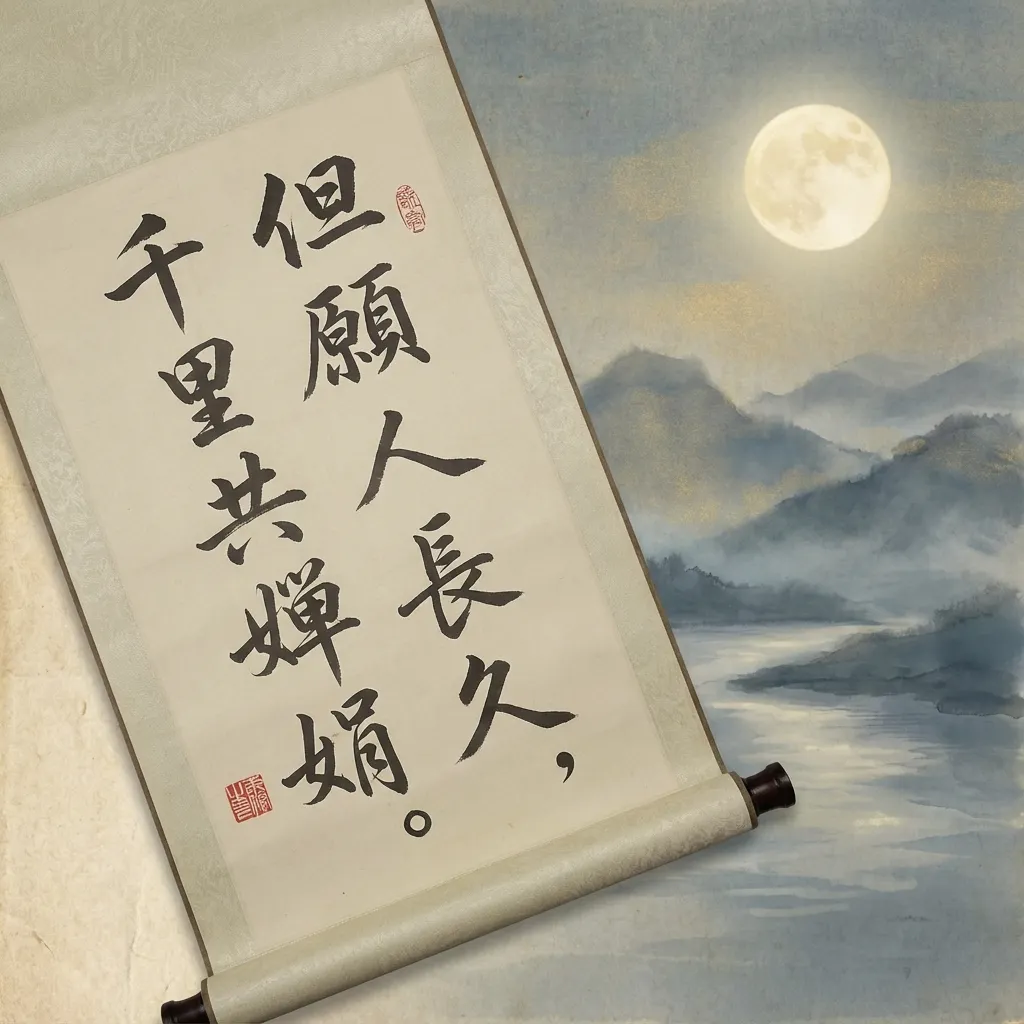 但願人長久，
千里共嬋娟。